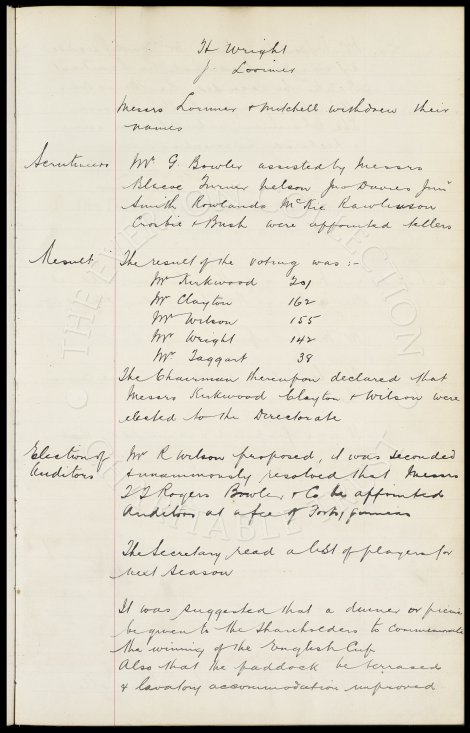 H Wright
J. Lorimer
Messrs Lorimer & Mitchell withdrew their
names
Scrutineers Mr G. Bowler assisted by Messrs
Blacoe Turner Nelson Jno Davies Junr
Smith Rowlands McKie Rawlinson
Crosbie & Bush were appointed tellers
Result The result of the voting was :-
Mr Kirkwood 201
Mr Clayton 162
Mr Wilson 155
Mr Wright 142
Mr Taggart 38
The Chairman thereupon declared that
Messrs Kirkwood Clayton & Wilson were
elected to the Directorate
Election of Mr R Wilson proposed, it was seconded
Auditors & unanimously resolved that Messrs
Rogers Bowler & Co be appointed
Auditors at a fee of Forty guineas
The Secretary read a list of players for
next season
It was suggested that a dinner or picnic
be given to the shareholders to commemorate
the winning of the English Cup
Also that the paddock be terraced
& lavatory accommodation improved
THE EVERTON COLLECTION
CHARITABLE TRUST